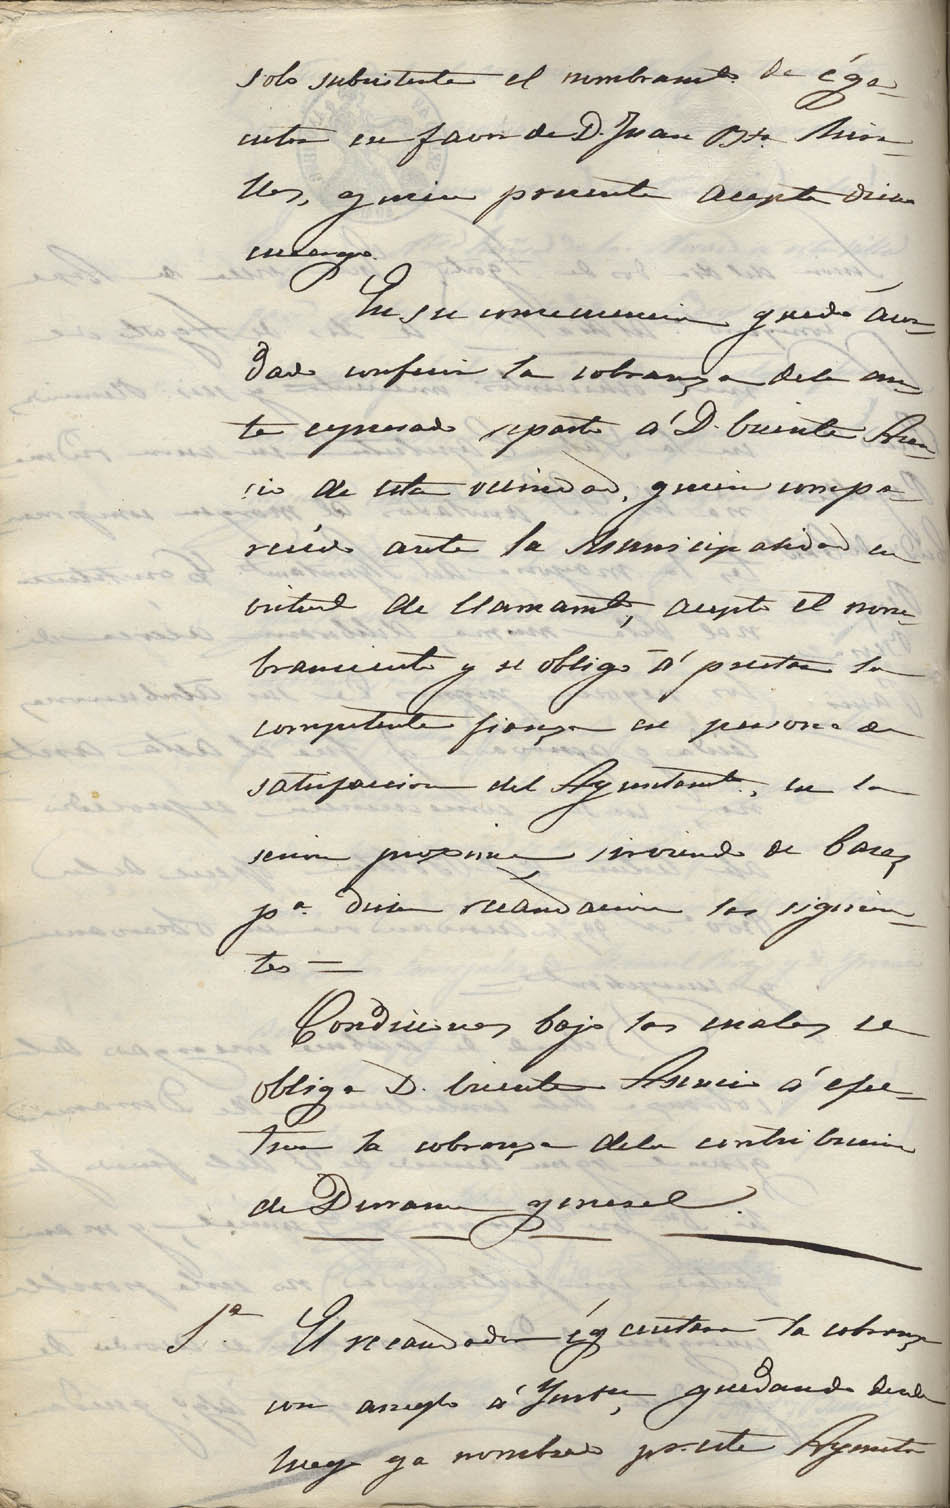 solo subsistente el nombramto. de ége-
cutor en favor de D. Juan Bta. Mira-
lles, quien presente acepta dicho
encargo.
En su consecuencia quedo ácor-
dado conferir la cobranza dela an-
te expresado reparto á D. Vicente Asen-
sio de esta vecindad, quien compa-
recido ante la Municipalidad en
virtud de llamamto, acepto el nom-
bramiento y se obligó á prestar la
competente fianza en persona de
satisfaccion del Ayuntamto., en la
sesion proxima sirviendo de bases
pa. dicha recaudacion las siguien-
tes =
Condiciones bajo las cuales se
obliga D. Vicente Asensio á efec-
tuar la cobranza dela contribucion
de Derrama general.
1a. El recaudador égecutara la cobranza
con arreglo á Instn, quedando desde
luego ya nombrado por este Ayunta